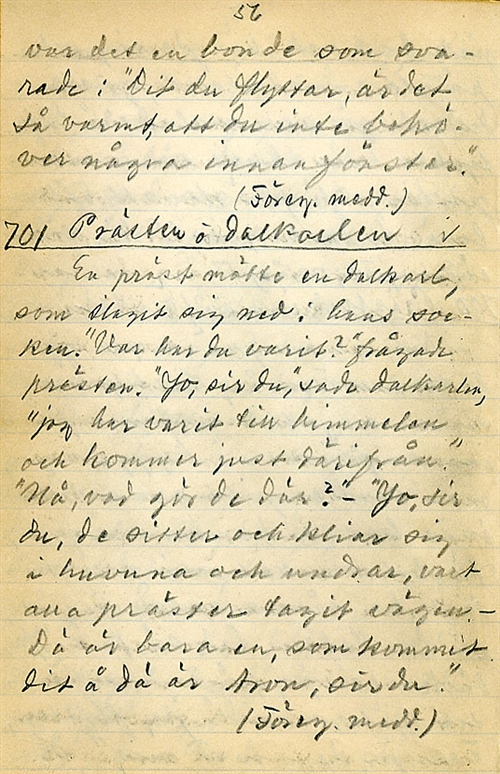 56
var det en bonde som sva-
rade: "Dit du flyttar, är det
så varmt, att du inte behö-
ver några innanfönster."
(Föreg. medd.)
701 Prästen å dalkarlen ✓
En präst mötte en dalkarl,
som slagit sig ned i hans soc-
ken. "Var har du varit?" frågade
prästen. "Jo, sir du," sade dalkarlen,
"jag har varit till himmelen
och kommer just därifrån."
"Nå, vad gör de där?" - "Jo, sir
du, de sitter och kliar sig
i huvuna och undrar, vart
alla präster tagit vägen. -
Dä är bara en, som kommit
dit å dä är Aron, sir du."
(Föreg. medd.)